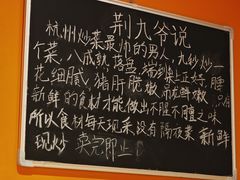 荆九爷说
杭州炒菜最帅的男人，九秒炒一
个菜，八成熟落盘，端到桌上正好，腰
花细腻，猪肝脆嫩，吊龙鲜嫩，
新鲜的食材才能做出不腥不膻之味
所以食材每天现采没有隔夜菜新鲜
现炒 卖完即止